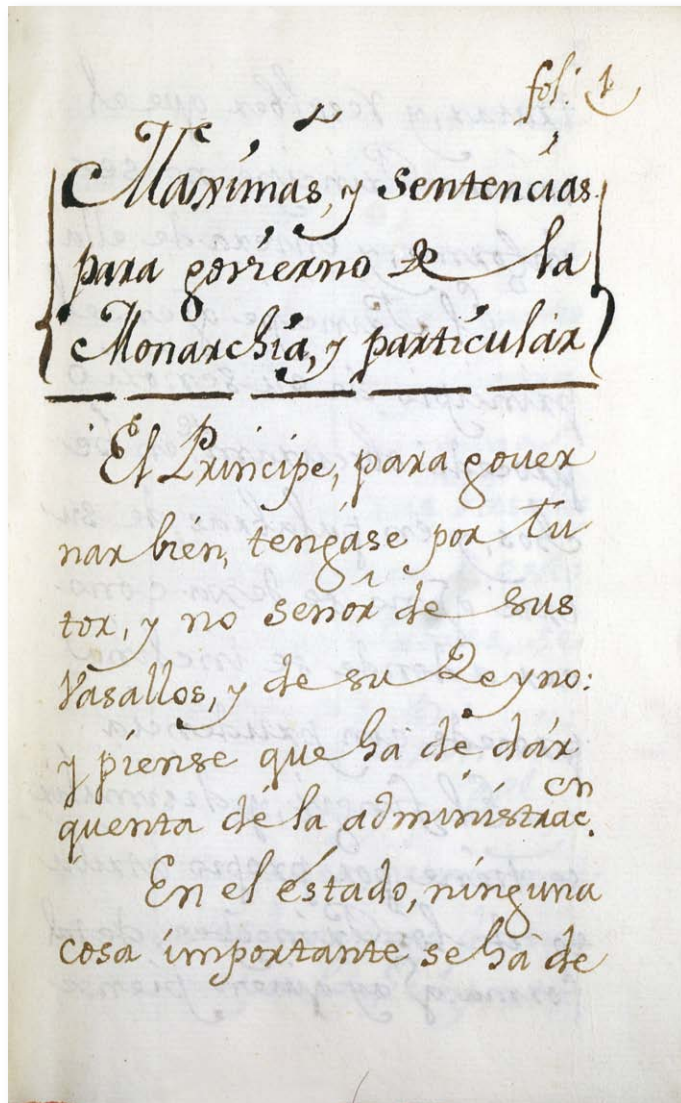 fol. 1
Maximas, y Sentencias
para govierno de la
Monarchia, y particular
El Principe, para gouer
nar bien, tengase por tu
tor, y no señor de sus
Vasallos, y de su Reyno:
y piense que ha de dár
quenta de la administrac.on
En el estado, ninguna
cosa importante se ha de